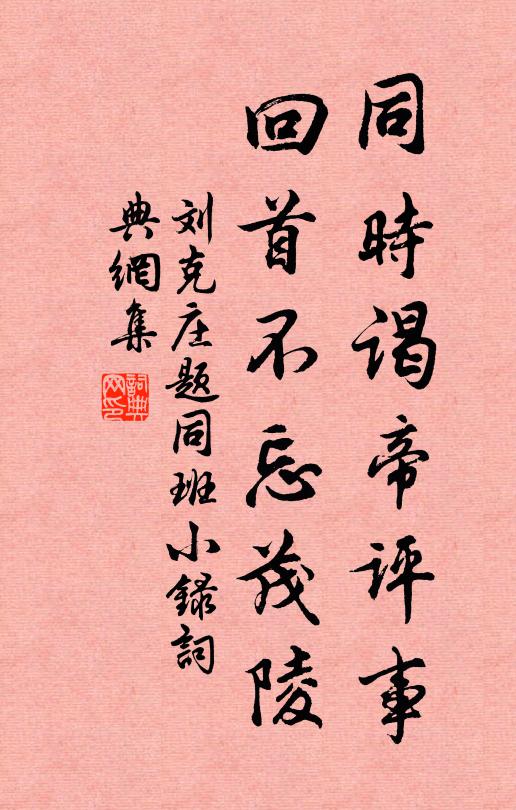 同時謁帝評事
回首不忘茂陵
刘克庄題同班小録詞
典網集
詞典
网印